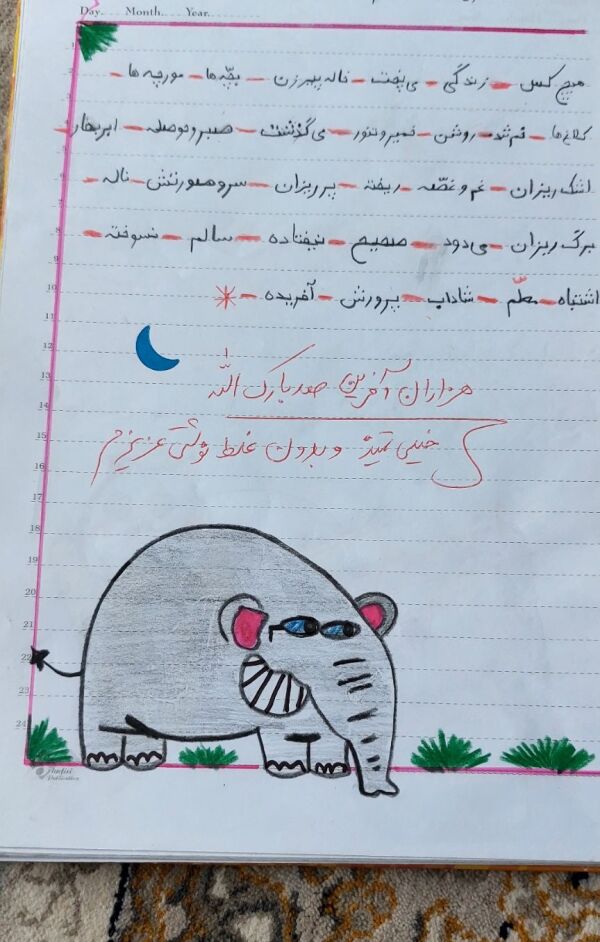 Day.... Month.... Year....
هیچ کس - زندگی - می‌پخت - ناله پیرزن - بچّه‌ها - مورچه‌ها -
کلاغ‌ها - قم شد - روشن - خمیر و تنور - می‌گذشت - صبر و حوصله - ابر بهار
اشک ریزان - غم و غصّه - ریخته - پر ریزان - سر و صورتش - ناله -
برگ ریزان - می‌دود - صحیح - نیفتاده - سالم - نسوخته -
اشتباه - معلّم - شاداب - پرورش - آفریده -
هزاران آفرین صد بارک الله
خیلی تمیز و بدون غلط نوشتی عزیزم